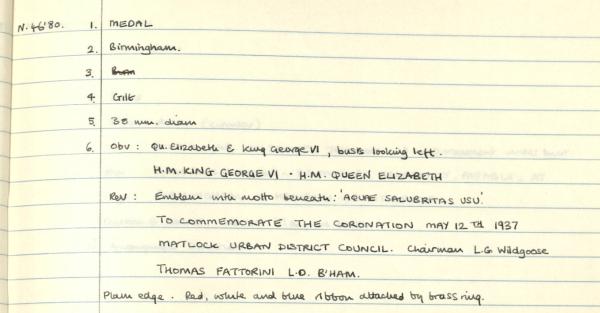 N.46'80. 1. MEDAL
2. Birmingham.
3.
4. Gilt
5. 38 mm. diam
6. Obv : Qu. Elizabeth & King George VI, busts looking left.
H.M. KING GEORGE VI · H.M. QUEEN ELIZABETH
Rev : Emblem with motto beneath: 'AQUAE SALUBRITAS USU.'
TO COMMEMORATE THE CORONATION MAY 12TH 1937
MATLOCK URBAN DISTRICT COUNCIL. Chairman L.G Wildgoose
THOMAS FATTORINI L.D. B'HAM.
Plain edge. Red, white and blue ribbon attached by brass ring.